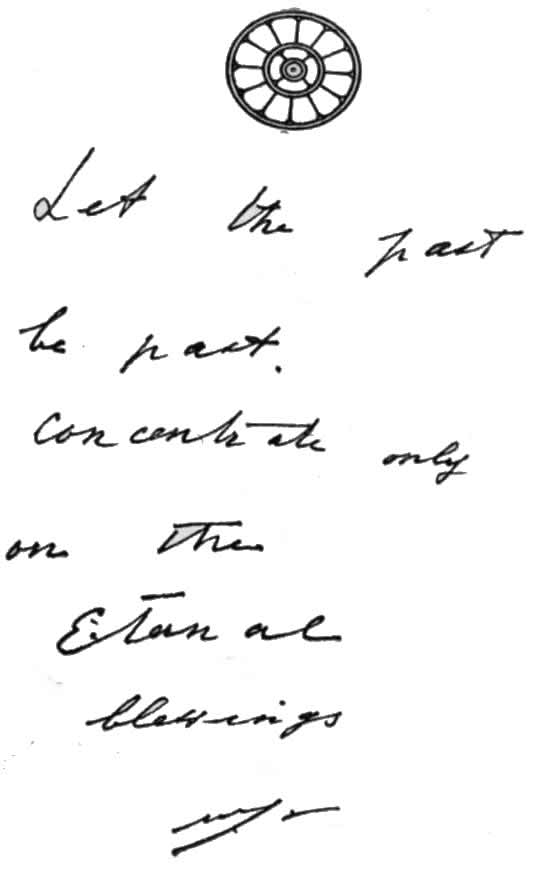 Let the past
be past.
Concentrate only
on the
Eternal
blessings